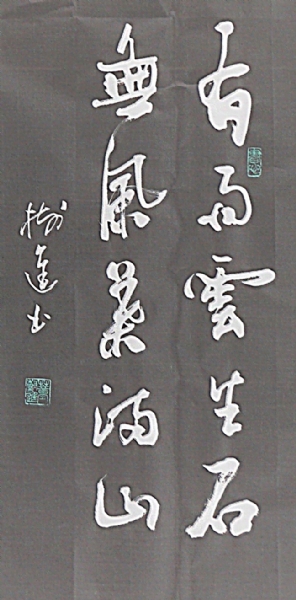 有雨雲生石
無風葉滿山
樹蓮书